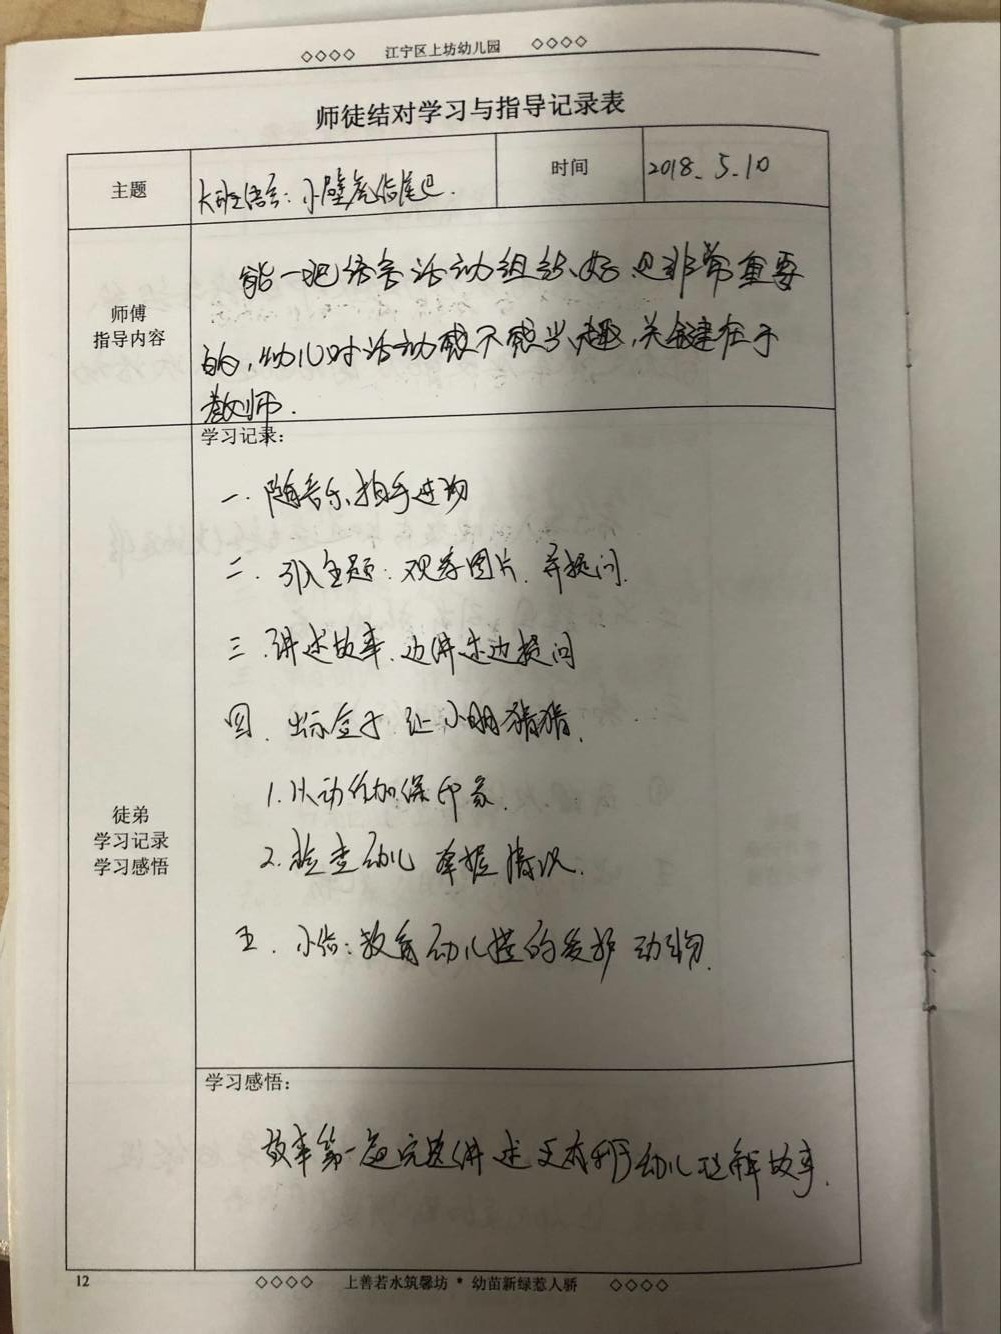 ◇◇◇◇ 江宁区上坊幼儿园 ◇◇◇◇
师徒结对学习与指导记录表
主题
大班语言：小壁虎借尾巴.
时间
2018.5.10
师傅
指导内容
能一把语言活动组织好是非常重要
的,幼儿对活动感不感兴趣,关键在于
教师.
徒弟
学习记录
学习感悟
学习记录：
一.随音乐、拍手进场
二.引入主题:观察图片.并提问.
三.讲述故事.边讲述边提问
四.出示盒子 让小朋猜猜.
1.从动作加深印象.
2.检查幼儿 掌握情况.
五.小结:教育幼儿懂的爱护 动物.
学习感悟：
故事第一遍完整讲述更有利于幼儿理解故事.
12
◇◇◇◇ 上善若水筑馨坊 * 幼苗新绿惹人骄 ◇◇◇◇